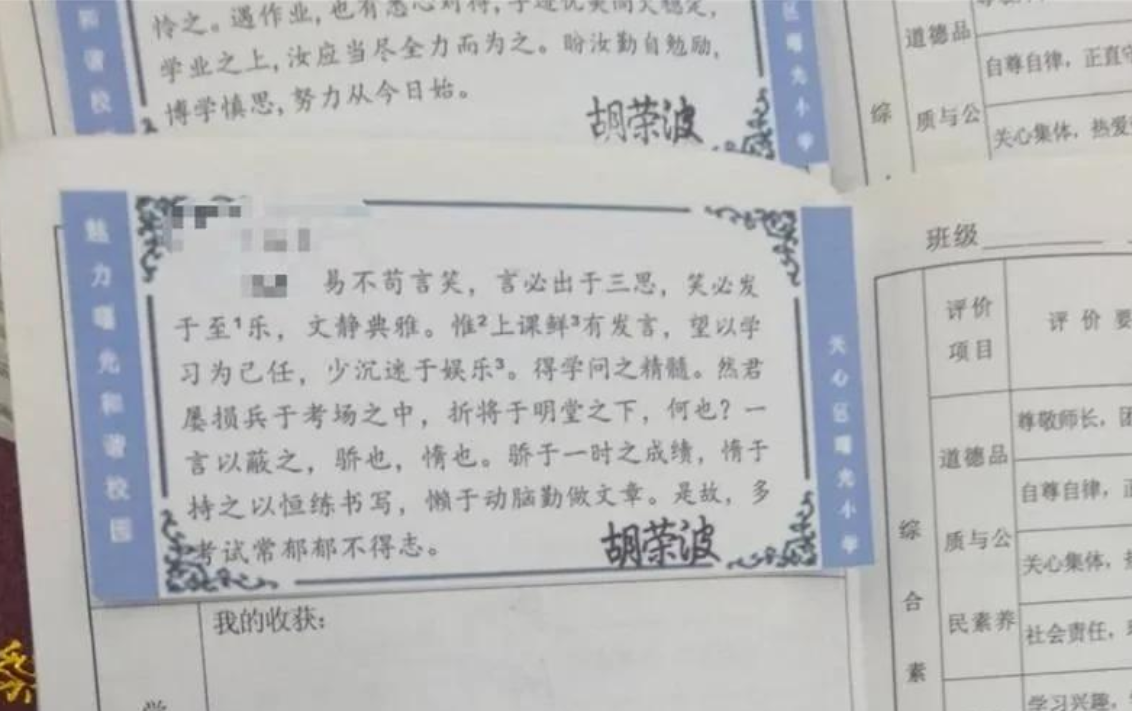 怜之。遇作业,也有悉心对待,字迹优美而欠稳定,
学业之上,汝应当尽全力而为之。盼汝勤自勉励,
博学慎思,努力从今日始。
胡荣波
谐
校
区
曙
光
小
学
魅
力
曙
光
和
谐
校
园
易不苟言笑，言必出于三思，笑必发
于至¹乐，文静典雅。惟²上课鲜³有发言，望以学
习为己任，少沉迷于娱乐³。得学问之精髓。然君
屡损兵于考场之中，折将于明堂之下，何也？一
言以蔽之，骄也，惰也。骄于一时之成绩，惰于
持之以恒练书写，懒于动脑勤做文章。是故，多
考试常郁郁不得志。
胡荣波
天
心
区
曙
光
小
学
我的收获：
学
综
道德品
质与公
自尊自律，正直
关心集体，热爱
班级
评价
项目
评 价 要
综
合
素
道德品
质与公
民素养
尊敬师长，团
自尊自律，正
关心集体，热
社会责任，
学习兴趣，